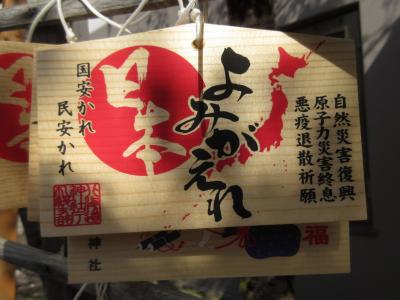 自然災害復興
原子力災害終息
悪疫退散祈願
よみがえれ
日本
国安かれ
民安かれ
神社
福